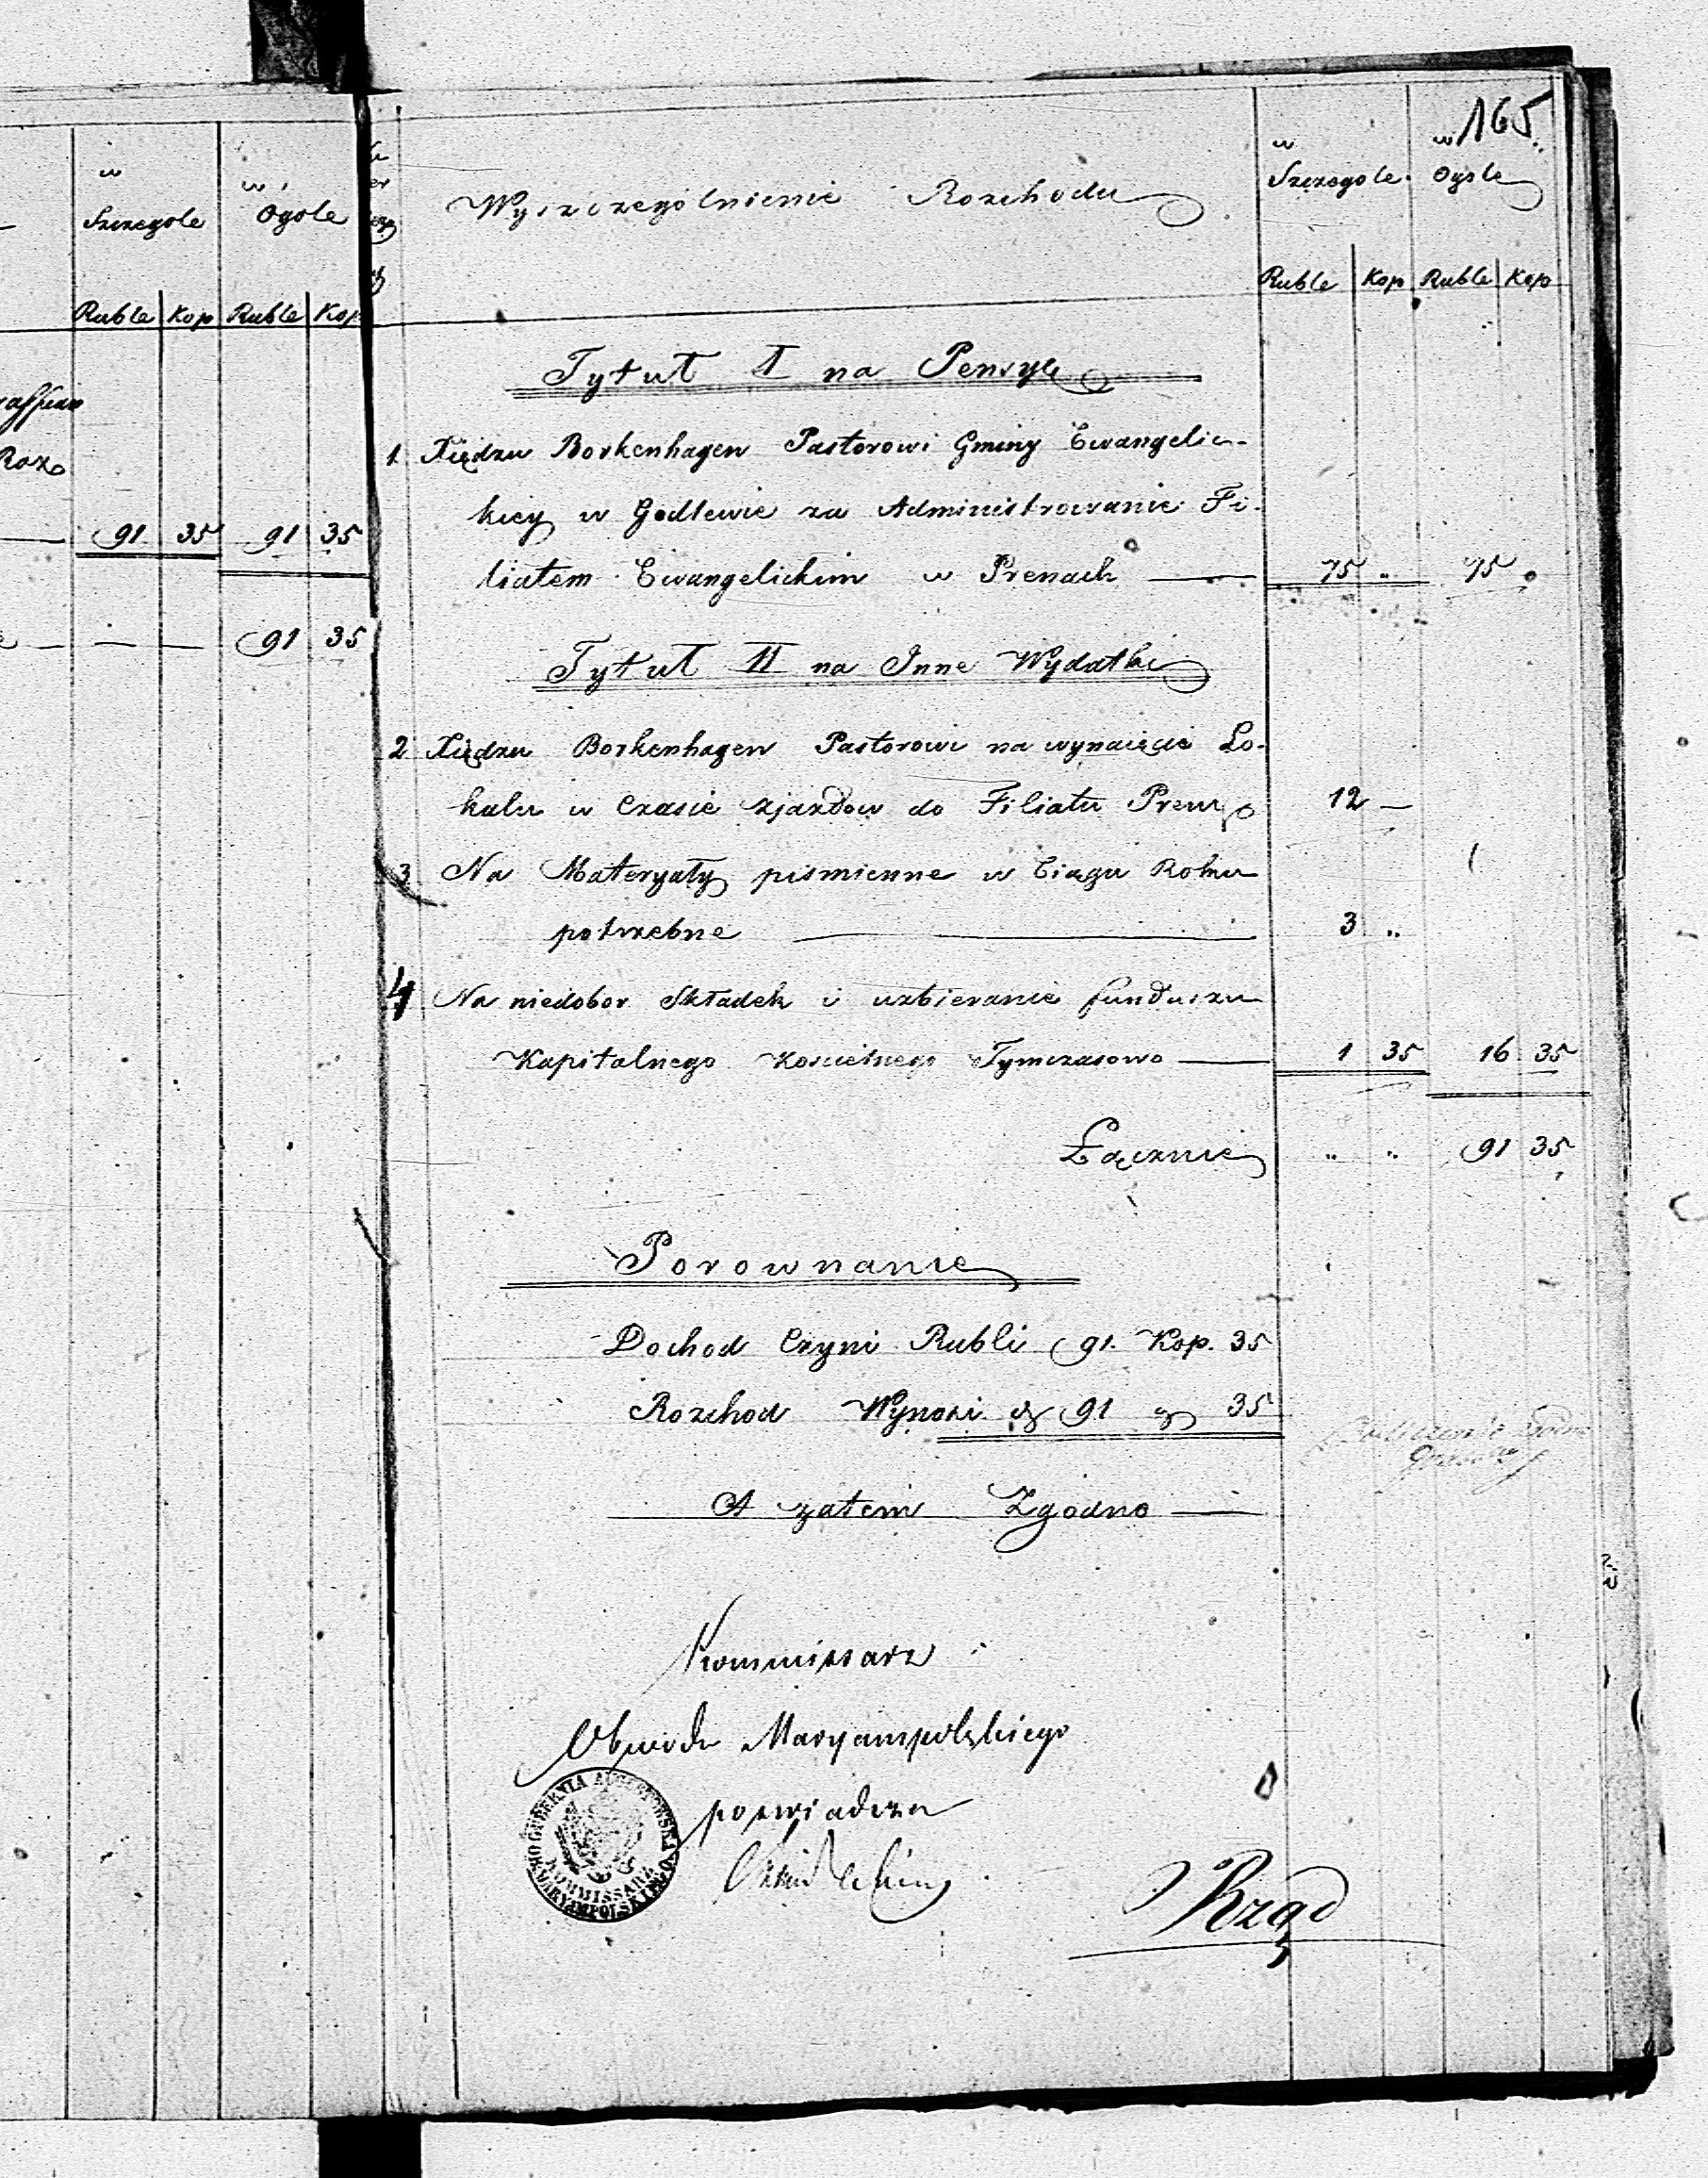 w
Szczegole
w
Ogole
Ruble Kop Ruble Kop
91 35 91 35
91 35
165
Wyszczegolnienie Rozchodu
w
Szczegole
w
Ogole
Ruble Kop Ruble Kop
Tytuł I na Pensye
1. Xiędzu Borkenhagen Pastorowi Gminy Ewangelic-
kiey w Godlewie za Administrowanie Fi-
liałem Ewangelickim w Prenach 75 „ 75
Tytuł II na Inne Wydatki
2 Xiędzu Borkenhagen Pastorowi na wynaięcie Lo-
kalu w Czasie zjazdow do Filiału Preny 12 —
3 Na Materyały piśmienne w Ciągu Roku
potrzebne 3 „
4 Na niedobor Składek i uzbieranie funduszu
Kapitalnego Koscielnego Tymczasowo 1 35 16 35
Łącznie „ „ 91 35
Porownanie
Dochod Czyni Rubli 91. Kop. 35
Rozchod Wynosi 91 35
A zatem Zgodno
Kommissarz
Obwodu Maryampolskiego
poswiadcza
GUBERNIA AUGUSTOWSKA
KOMMISSARZ
Rząd